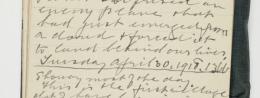 enemy plane that
had just emerged from
a cloud & forced it
to land behind our lines
Tuesday April 30, 1918.
Showery most of the day
This is the first